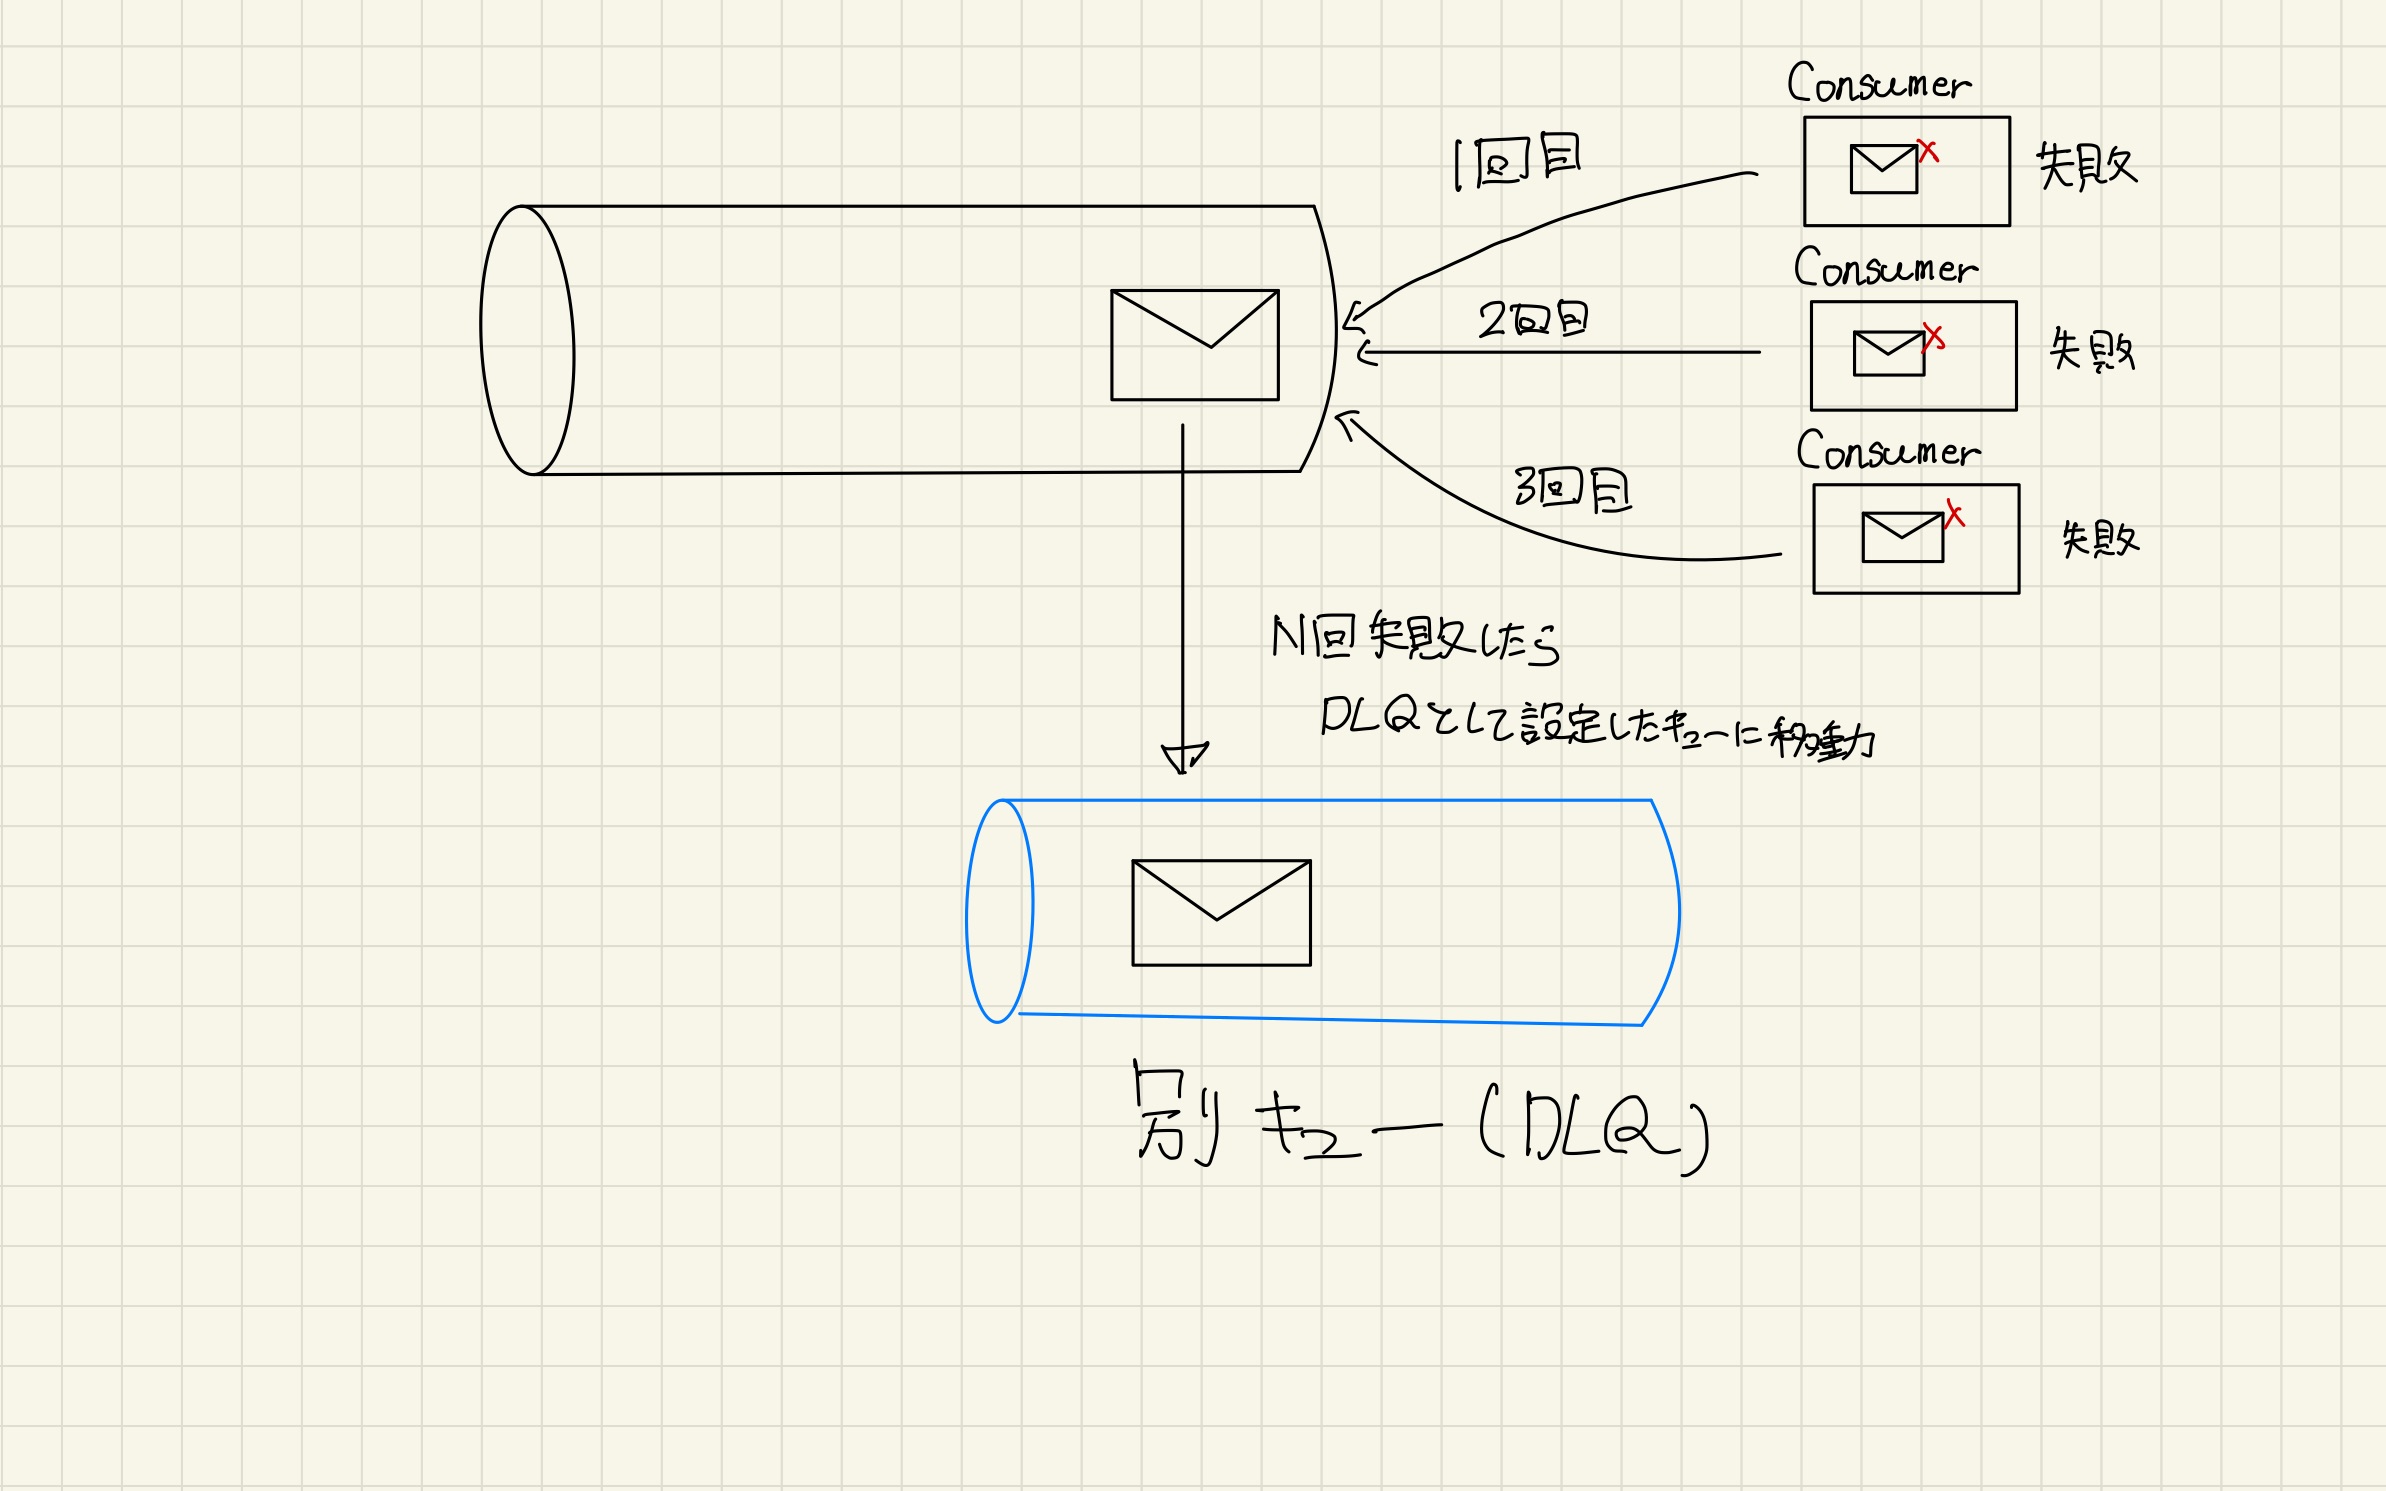 Consumer
1回目
失敗
Consumer
2回目
失敗
Consumer
3回目
失敗
N回失敗したら
DLQとして設定したキューに移動
別キュー(DLQ)